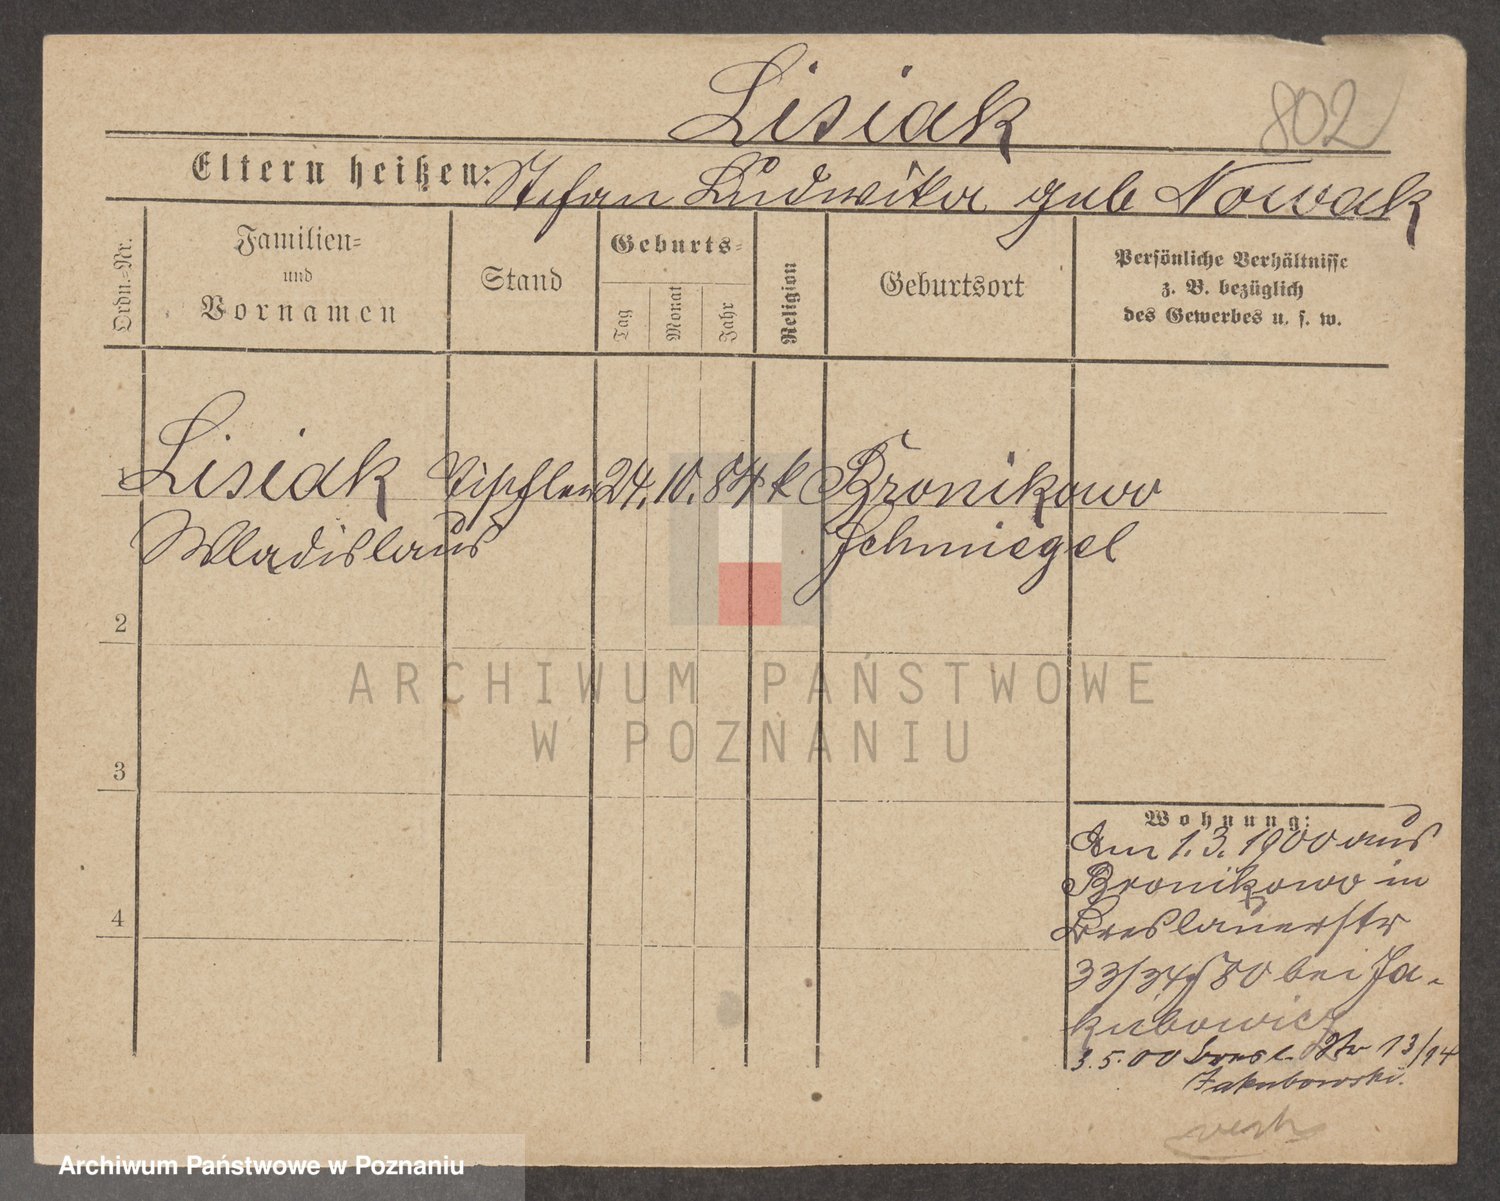 Lisiak 802
Eltern heißen: Stefan Ludwika geb Nowak
Ordn.-Nr.
Familien-
und
Vornamen
Stand
Geburts-
Tag
Monat
Jahr
Religion
Geburtsort
Persönliche Verhältnisse
z. B. bezüglich
des Gewerbes u. s. w.
1 Lisiak Tischler 24. 10. 84 k Bronikowo
Wladislaus Schmiegel
2
3
4
Wohnung:
Am 1.3.1900 aus
Bronikowo in
Breslauerstr
33/34 bei Ja-
kubowicz
3.5.00 Bresl. Str 13/14
Jakubowski.
ARCHIWUM PAŃSTWOWE
W POZNANIU
Archiwum Państwowe w Poznaniu